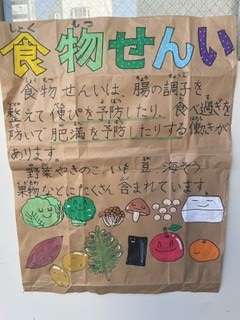 しょく もつ
食物せんい
食物せんいは、腸の調子を
整えて便ぴを予防したり、食べ過ぎを
防いで肥満を予防したりする働きが
あります。
野菜やきのこ、いも、豆、海そう、
果物などにたくさん含まれています。